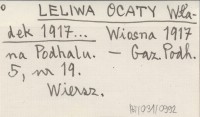 LELIWA OCATY Wła-
dek 1917... Wiosna 1917
na Podhalu. — Gaz. Podh.
5, nr 19.
Wiersz.